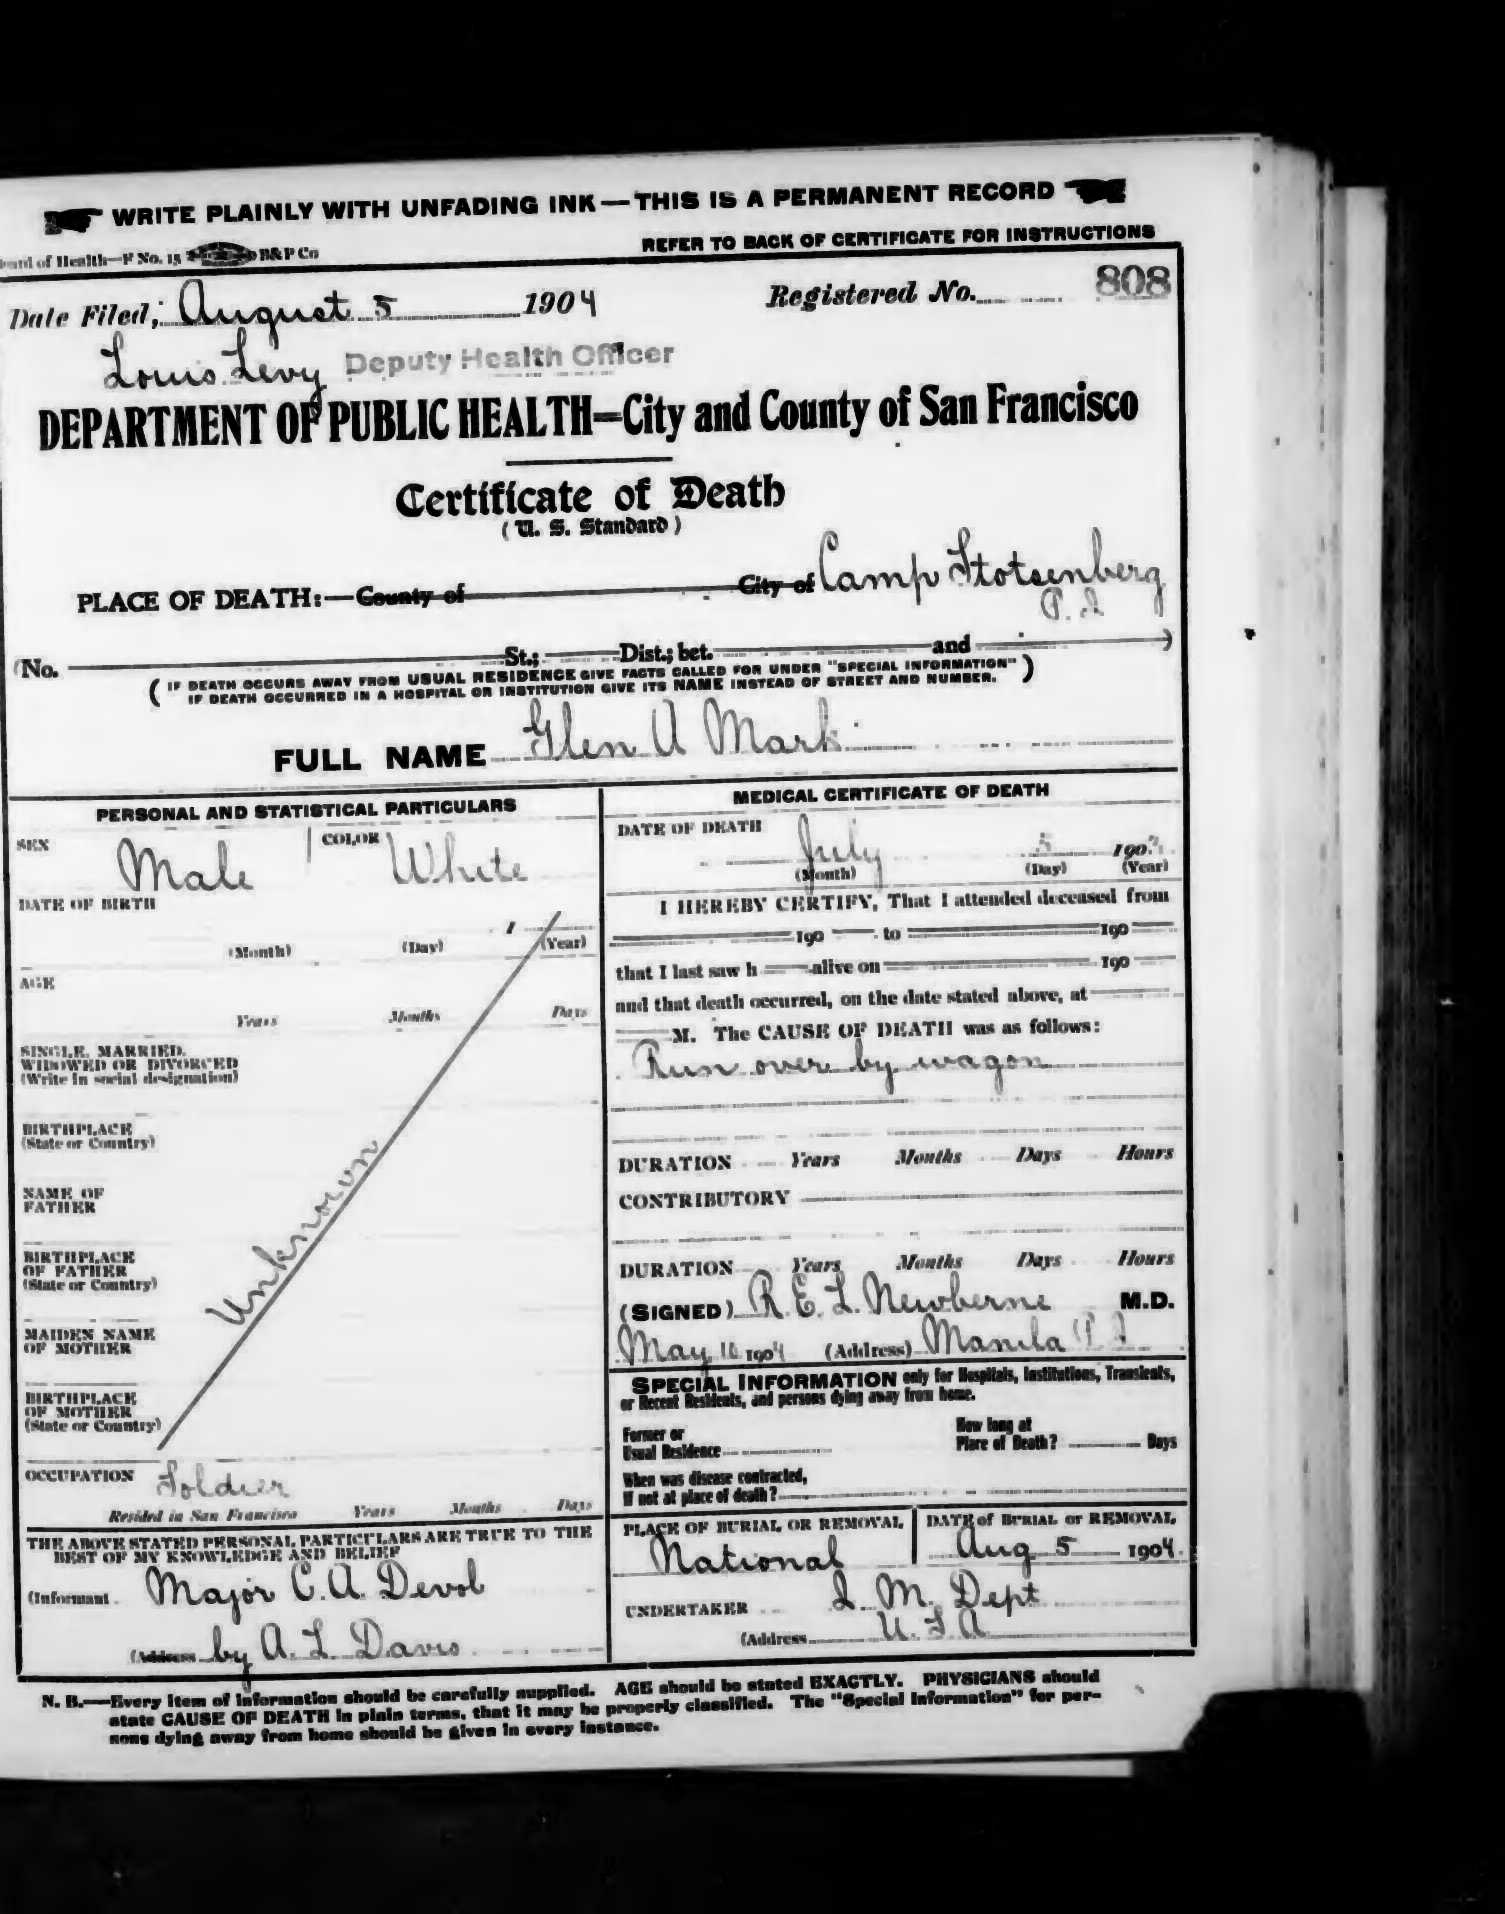 WRITE PLAINLY WITH UNFADING INK—THIS IS A PERMANENT RECORD
of Health—F No. 15 B&P Co
REFER TO BACK OF CERTIFICATE FOR INSTRUCTIONS
Date Filed, August 5 1904 Registered No. 808
Louis Levy Deputy Health Officer
DEPARTMENT OF PUBLIC HEALTH=City and County of San Francisco
Certificate of Death
(U. S. Standard)
PLACE OF DEATH:—County of City of Camp Stotsenberg
P. I
(No. St.; Dist.; bet. and )
(IF DEATH OCCURS AWAY FROM USUAL RESIDENCE GIVE FACTS CALLED FOR UNDER "SPECIAL INFORMATION")
IF DEATH OCCURRED IN A HOSPITAL OR INSTITUTION GIVE ITS NAME INSTEAD OF STREET AND NUMBER.
FULL NAME Glen A Mark
PERSONAL AND STATISTICAL PARTICULARS
SEX Male COLOR White
DATE OF BIRTH
1
(Month) (Day) (Year)
AGE
Years Months Days
SINGLE, MARRIED,
WIDOWED OR DIVORCED
(Write in social designation)
BIRTHPLACE
(State or Country)
NAME OF
FATHER
Unknown
BIRTHPLACE
OF FATHER
(State or Country)
MAIDEN NAME
OF MOTHER
BIRTHPLACE
OF MOTHER
(State or Country)
OCCUPATION Soldier
Resided in San Francisco Years Months Days
THE ABOVE STATED PERSONAL PARTICULARS ARE TRUE TO THE
BEST OF MY KNOWLEDGE AND BELIEF
(Informant Major C. A. Devol
(Address by A. L Davis
MEDICAL CERTIFICATE OF DEATH
DATE OF DEATH
July 5 190
(Month) (Day) (Year)
I HEREBY CERTIFY, That I attended deceased from
190 to 190
that I last saw h alive on 190
and that death occurred, on the date stated above, at
M. The CAUSE OF DEATH was as follows:
Run over by wagon
DURATION Years Months Days Hours
CONTRIBUTORY
DURATION Years Months Days Hours
(SIGNED) R. E. L. Newberne M.D.
May 10 1904 (Address) Manila P I
SPECIAL INFORMATION only for Hospitals, Institutions, Transients,
or Recent Residents, and persons dying away from home.
Former or
Usual Residence
How long at
Place of Death? Days
When was disease contracted,
If not at place of death?
PLACE OF BURIAL OR REMOVAL
National
DATE of BURIAL or REMOVAL
Aug 5 1904
UNDERTAKER Q. M. Dept
(Address U. S A
N. B.—Every item of information should be carefully supplied. AGE should be stated EXACTLY. PHYSICIANS should
state CAUSE OF DEATH in plain terms, that it may be properly classified. The "Special Information" for per-
sons dying away from home should be given in every instance.